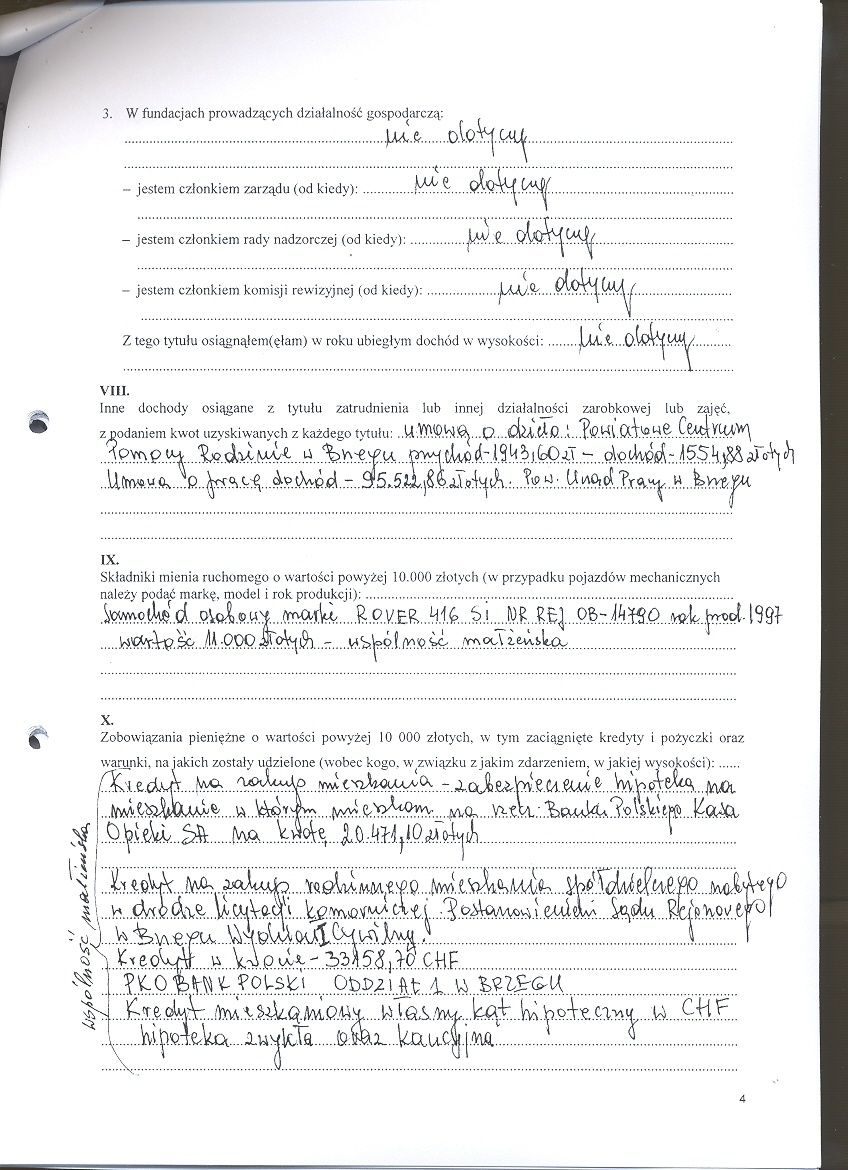 3. W fundacjach prowadzących działalność gospodarczą:
nie dotyczy
– jestem członkiem zarządu (od kiedy): nie dotyczy
– jestem członkiem rady nadzorczej (od kiedy): nie dotyczy
– jestem członkiem komisji rewizyjnej (od kiedy): nie dotyczy
Z tego tytułu osiągnąłem(ęłam) w roku ubiegłym dochód w wysokości: nie dotyczy
VIII.
Inne dochody osiągane z tytułu zatrudnienia lub innej działalności zarobkowej lub zajęć,
z podaniem kwot uzyskiwanych z każdego tytułu: umowa o dzieło: Powiatowe Centrum
Pomocy Rodzinie w Brzegu przychód-1943,60zł – dochód-1554,88 złotych
Umowa o pracę dochód – 95.522,86 złotych. Pow. Urząd Pracy w Brzegu
IX.
Składniki mienia ruchomego o wartości powyżej 10.000 złotych (w przypadku pojazdów mechanicznych
należy podać markę, model i rok produkcji):
Samochód osobowy marki ROVER 416 Si NR REJ OB-14790 rok prod. 1997
wartość 11.000 złotych – wspólność małżeńska
X.
Zobowiązania pieniężne o wartości powyżej 10 000 złotych, w tym zaciągnięte kredyty i pożyczki oraz
warunki, na jakich zostały udzielone (wobec kogo, w związku z jakim zdarzeniem, w jakiej wysokości):
Kredyt na zakup mieszkania – zabezpieczenie hipoteka na
mieszkanie w którym mieszkam na rzecz Banku Polskiego Kasa
Opieki SA na kwotę 20.471,10 złotych
Kredyt na zakup rodzinnego mieszkania spółdzielczego nabytego
w drodze licytacji komorniczej. Postanowieniem Sądu Rejonowego
w Brzegu Wydział I Cywilny.
Kredyt w kwocie – 33158,70 CHF
PKO BANK POLSKI ODDZIAŁ 1 W BRZEGU
Kredyt mieszkaniowy własny kąt hipoteczny w CHF
hipoteka zwykła oraz kaucyjna
wspólność małżeńska
4